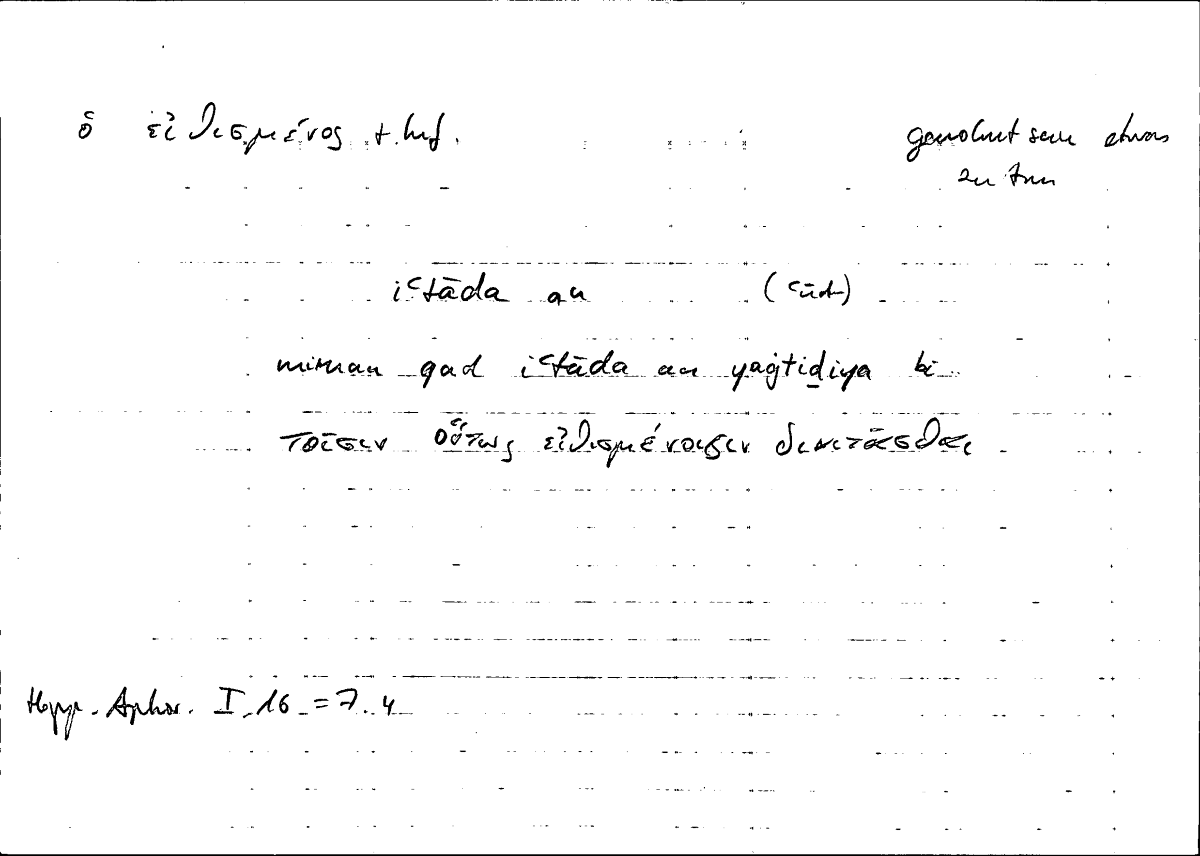 ὁ εἰθισμένος + Inf. gewohnt sein etwas
zu tun
iʿtāda an (ʿūd)
mimman qad iʿtāda an yaġtiḏiya bi
τοῖσιν οὕτως εἰθισμένοισιν διαιτᾶσθαι
Hipp. Aphor. I 16 = 7. 4